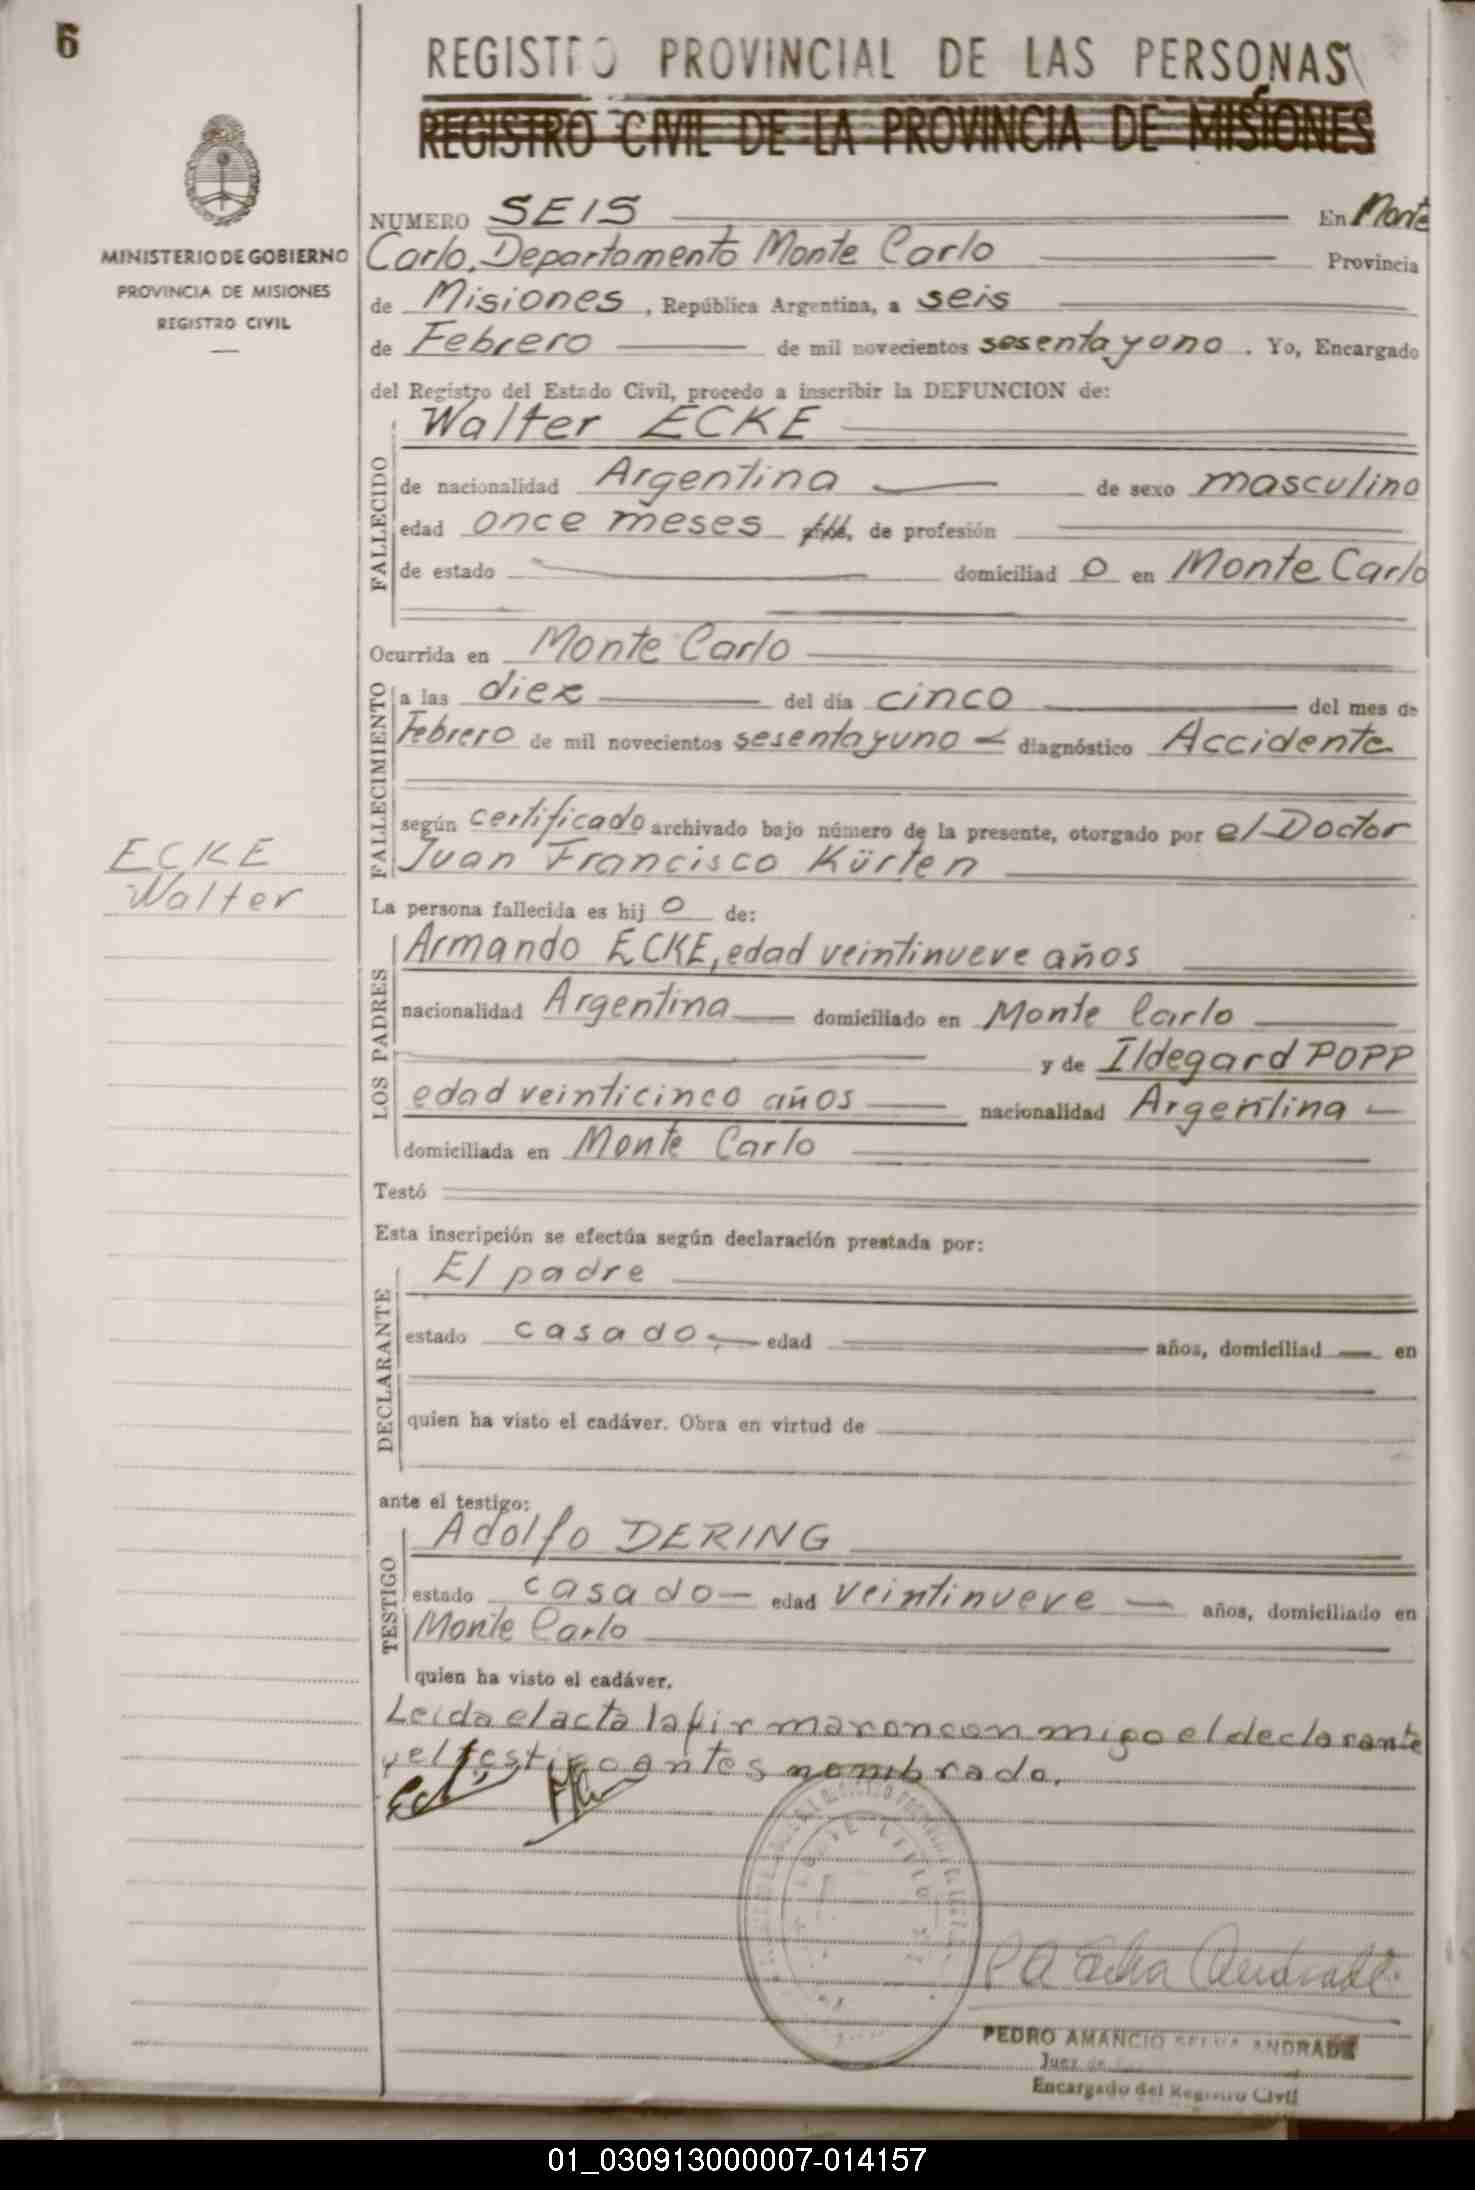 6
REGISTRO PROVINCIAL DE LAS PERSONAS
REGISTRO CIVIL DE LA PROVINCIA DE MISIONES
MINISTERIO DE GOBIERNO
PROVINCIA DE MISIONES
REGISTRO CIVIL
NUMERO SEIS En Monte
Carlo, Departamento Monte Carlo Provincia
de Misiones, República Argentina, a seis
de Febrero de mil novecientos sesentayuno. Yo, Encargado
del Registro del Estado Civil, procedo a inscribir la DEFUNCION de:
FALLECIDO
Walter ECKE
de nacionalidad Argentina de sexo masculino
edad once meses, de profesión
de estado domiciliad o en Monte Carlo
Ocurrida en Monte Carlo
FALLECIMIENTO
a las diez del día cinco del mes de
Febrero de mil novecientos sesentayuno diagnóstico Accidente
según certificado archivado bajo número de la presente, otorgado por el Doctor
Juan Francisco Kürten
ECKE
Walter
La persona fallecida es hij o de:
LOS PADRES
Armando ECKE, edad veintinueve años
nacionalidad Argentina domiciliado en Monte Carlo
y de Ildegard POPP
edad veinticinco años nacionalidad Argentina
domiciliada en Monte Carlo
Testó
Esta inscripción se efectúa según declaración prestada por:
DECLARANTE
El padre
estado casado, edad años, domiciliad en
quien ha visto el cadáver. Obra en virtud de
ante el testigo:
TESTIGO
Adolfo DERING
estado casado edad veintinueve años, domiciliado en
Monte Carlo
quien ha visto el cadáver.
Leída el acta la firmaron conmigo el declarante
y el testigo antes nombrado.
PEDRO AMANCIO ANDRADE
Juez de
Encargado del Registro Civil
01_030913000007-014157